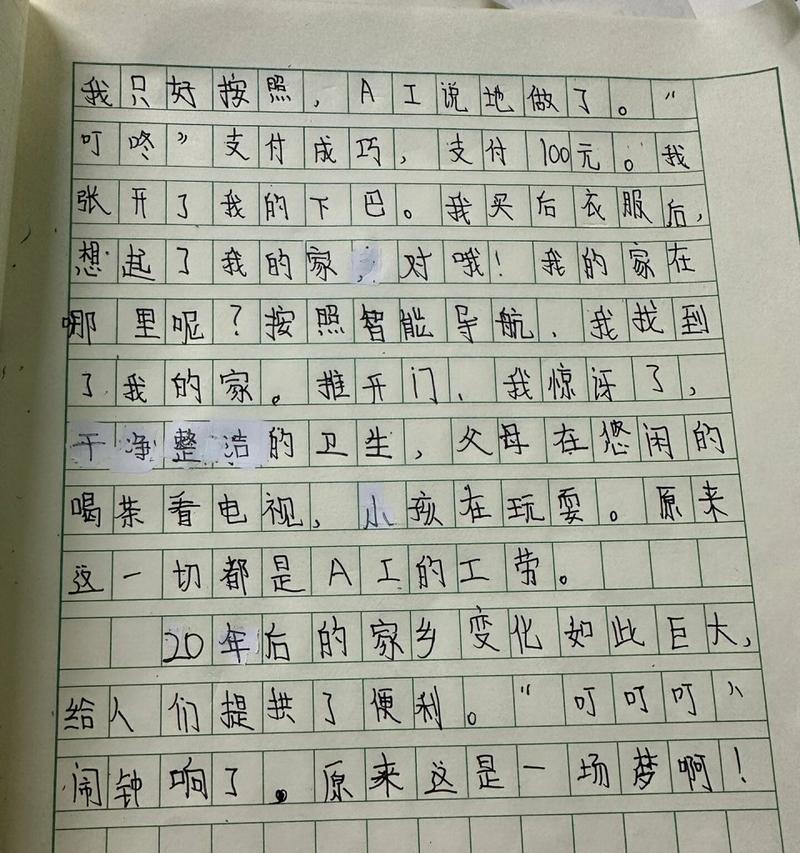 我只好按照，AI说地做了。“
叮咚”支付成巧，支付100元。我
张开了我的下巴。我买后衣服后，
想起了我的家，对哦！我的家在
哪里呢？按照智能导航、我找到
了我的家。推开门、我惊讶了，
干净整洁的卫生，父母在悠闲的
喝茶看电视，小孩在玩耍。原来
这一切都是AI的工劳。
20年后的家乡变化如此巨大，
给人们提拱了便利。“叮叮叮”
闹钟响了。原来这是一场梦啊！